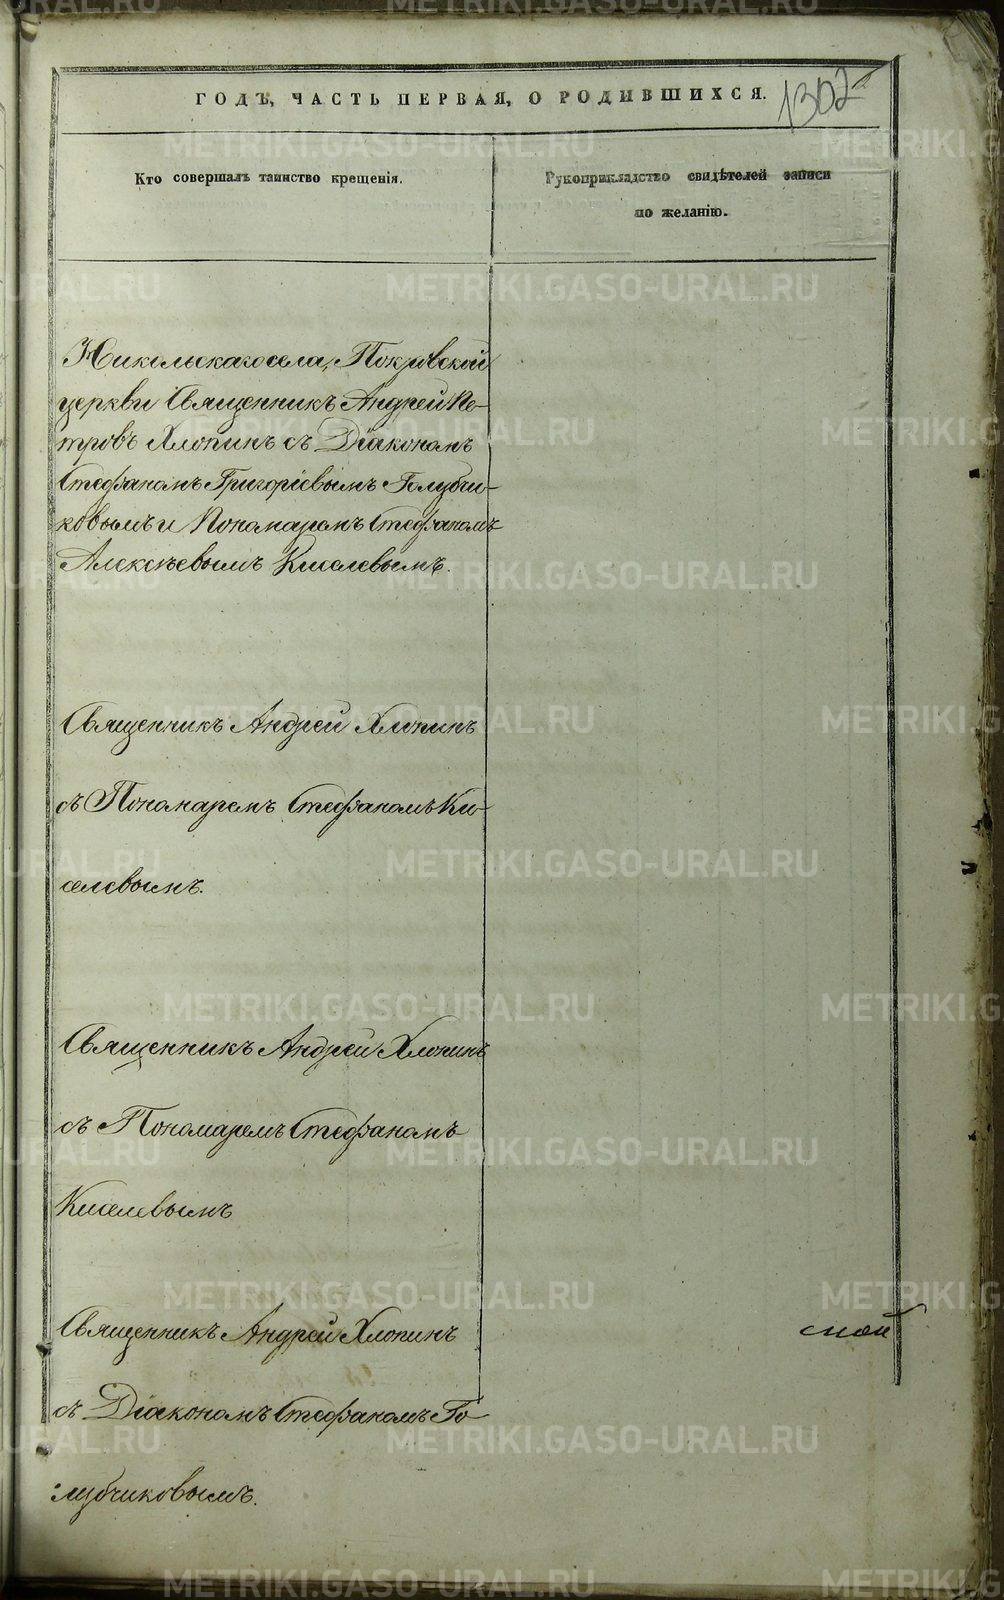 ГОДЪ, ЧАСТЬ ПЕРВАЯ, О РОДЫВШИХСЯ.
1302
Кто совершалъ таинство крещенія.
Рукоприкладство свидѣтелей записи
по желанію.
Никольскаго села, Покровской
церкви Священникъ Андрей Пе-
тровъ Хлопинъ съ Діакономъ
Стефаномъ Григоріевымъ Голубчи-
ковымъ и Пономаремъ Стефаномъ
Алексѣевымъ Киселевымъ.
Священникъ Андрей Хлопинъ
съ Пономаремъ Стефаномъ Ки-
селевымъ.
Священникъ Андрей Хлопинъ
съ Пономаремъ Стефаномъ
Киселевымъ
Священникъ Андрей Хлопинъ
съ Діакономъ Стефаномъ Го-
лубчиковымъ.
METRIKI.GASO-URAL.RU